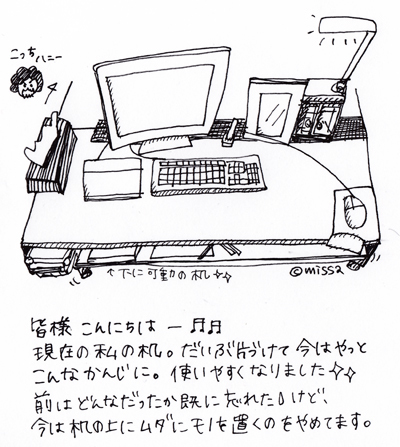 こっちハニー
↑下に可動の机✧✧
©missa
皆様 こんにちは ー♬♬
現在の私の机。だいぶ片づけて今はやっと
こんなかんじに。使いやすくなりました✧✧
前はどんなだったか既に忘れたけど、
今は机の上にムダにモノを置くのをやめてます。